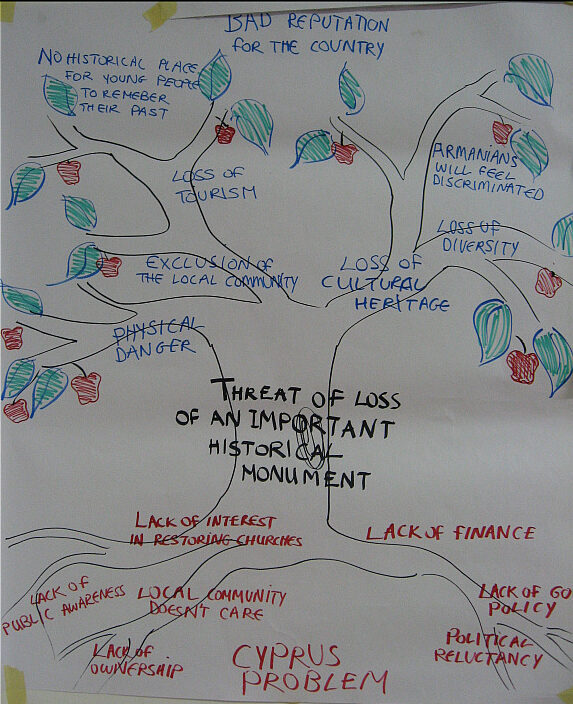 BAD REPUTATION
FOR THE COUNTRY
NO HISTORICAL PLACE
FOR YOUNG PEOPLE
TO REMEBER
THEIR PAST
LOSS OF
TOURISM
ARMANIANS
WILL FEEL
DISCRIMINATED
LOSS OF
DIVERSITY
EXCLUSION OF
THE LOCAL COMMUNITY
LOSS OF
CULTURAL
HERITAGE
PHYSICAL
DANGER
THREAT OF LOSS
OF AN IMPORTANT
HISTORICAL
MONUMENT
LACK OF INTEREST
IN RESTORING CHURCHES
LACK OF FINANCE
LACK OF
PUBLIC AWARENESS
LOCAL COMMUNITY
DOESN'T CARE
LACK OF GO
POLICY
LACK OF
OWNERSHIP
POLITICAL
RELUCTANCY
CYPRUS
PROBLEM